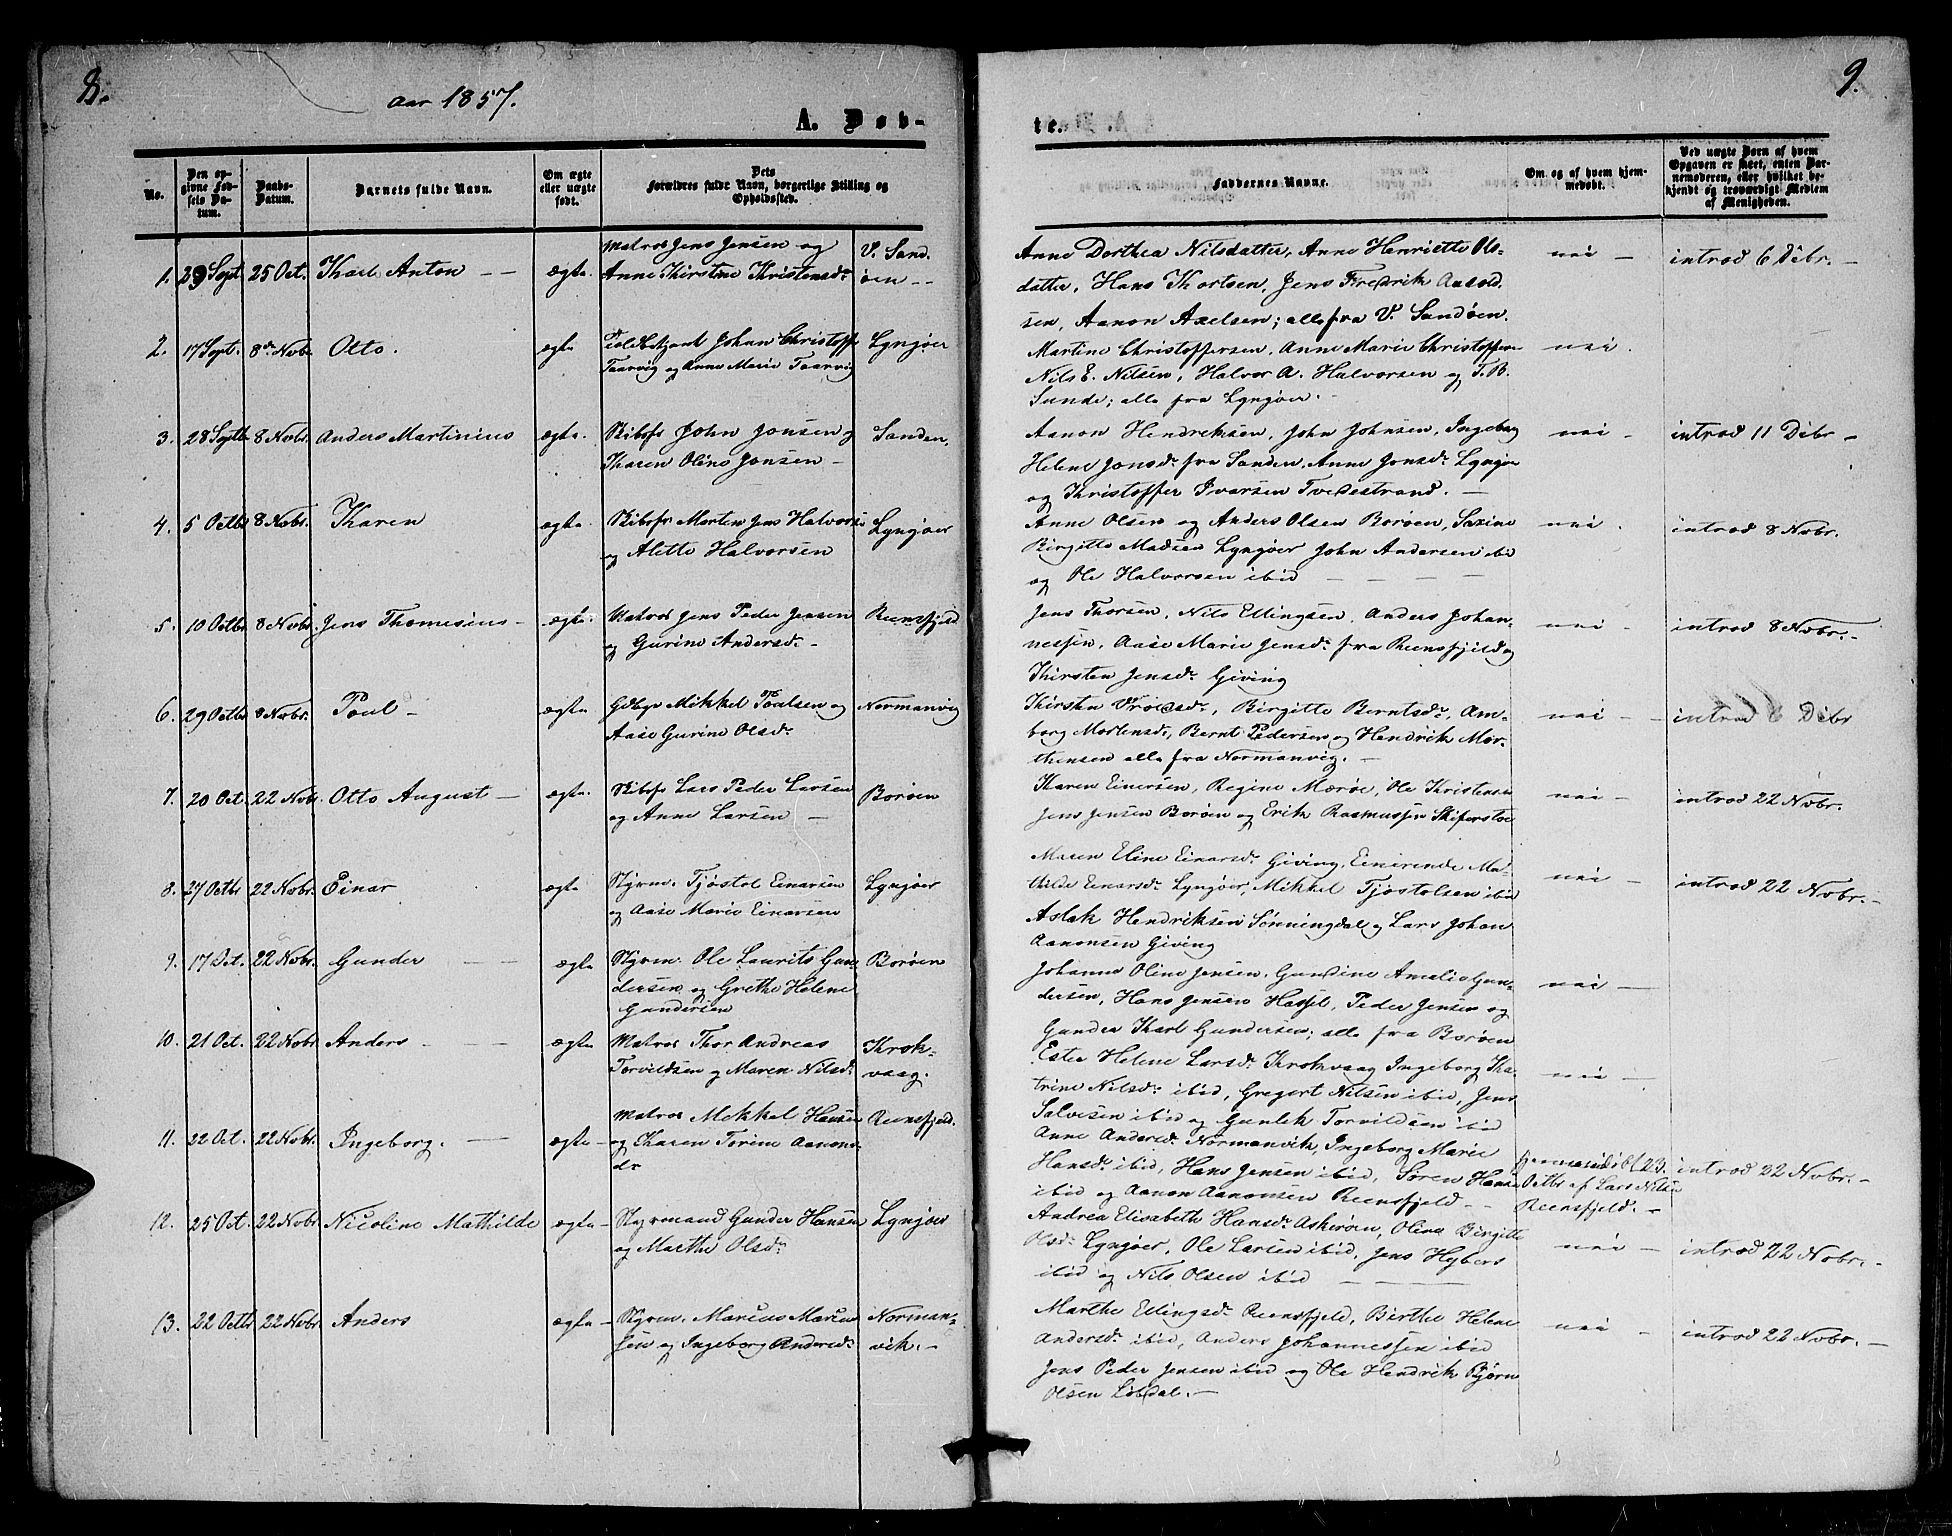 8.
Aar 1857.
A. Døb-
No.
Den op-
givne Fød-
sels Da-
tum.
Daabs-
Datum.
Barnets fulde Navn.
Om ægte
eller uægte
født.
Dets
Forældres fulde Navn, borgerlige Stilling og
Opholdssted.
1. 29 Sept. 25 Oct. Karl Anton ægte. Matros Jens Jensen og
Anne Kirstine Kristensdr V. Sand-
øen
2. 17 Sept. 8de Nobr Otto. ægte Johan Christoffer
Taarvig og Anne Marie Taarvig Lyngøer
3. 28 Septbr 8 Nobr. Anders Martinius ægte. Skibsfr John Jonsen og
Karen Oline Jonsen Sanden.
4. 5 Octbr 8 Nobr. Karen ægte. Skibsfr Morten Jens Halvorsen
og Alette Halvorsen Lyngøer
5. 10 Octbr 8 Nobr. Jens Thomesius ægte. Matros Jens Peder Jensen
og Gurine Andersdr Reensfjeld
6. 29 Octbr 8 Nobr. Poul ægte Mikkel Poulsen og
Aase Gurine Olsdr Normanvig
7. 20 Oct. 22 Nobr. Otto August ægte. Skibsfr Lars Peder Larsen
og Anne Larsen Borøen
8. 27 Octbr 22 Nobr. Einar ægte Styrm. Tjøstol Einarsen
og Aase Marie Einarsen Lyngøer
9. 17 Oct. 22 Nobr. Gunder ægte Styrm. Ole Laurits Gun-
dersen og Grethe Helene
Gundersen Borøen
10. 21 Oct. 22 Nobr. Anders ægte Matros Thor Andreas
Torvildsen og Maren Nilsdr Krok-
vaag.
11. 22 Oct. 22 Nobr. Ingeborg. ægte Matros Mikkel Hansen
og Karen Torine Aanons-
dr Reensfjeld.
12. 25 Oct. 22 Nobr. Nicoline Mathilde ægte Styrmand Gunder Hansen
og Marthe Olsdr Lyngøer
13. 22 Octbr 22 Nobr. Anders ægte Styrm. Marcus Marcus-
sen og Ingeborg Andersdr Norman-
vik.
9.
te.
Faddernes Navne.
Om og af hvem hjem-
medøbt.
Ved uægte Børn af hvem
Opgaven er skeet, enten Bar-
nemoderen, eller hvilket be-
kjendt og troværdigt Medlem
af Menigheden.
Anne Dorthea Nilsdatter, Anne Henriette Ols-
datter, Hans Kortsen, Jens Fredrik Aasold-
sen, Aanon Axelsen; alle fra V. Sandøen.
nei introd 6 Debr.
Martine Christoffersen, Anne Marie Christoffersen
Nils E. Nilsen, Halvor A. Halvorsen og T. B.
Sunde; alle fra Lyngøer.
nei.
Aanon Hendriksen, John Johnsen, Ingeborg
Helene Jonsdr fra Sanden, Anne Jonsdr Lyngøer
og Kristoffer Ivarsen Tvedestrand.
nei introd 11 Debr
Anne Olsen og Anders Olsen Borøen, Saxine
Birgitte Madsen Lyngøer John Andersen ibid
og Ole Halvorsen ibid
nei. introd 8 Nobr.
Jens Thorsen, Nils Ellingsen, Anders Johan-
nessen, Aase Marie Jensdr fra Reensfjeld og
Kirsten Jensdr Giving
nei introd 8 Nobr.
Kirsten Vroldsdr, Birgitte Berntsdr, Am-
borg Mortensdr, Bernt Pedersen og Hendrik Mor-
thensen alle fra Normanvig.
nei introd 8 Debr
Karen Einersen, Regine Mærøe, Ole Kristensen
Jens Jensen Borøen og Erik Rasmussen Skiferstoe
nei introd 22 Nobr.
Maren Eline Einarsdr Giving, Einerende Ma-
thilde Einarsdr Lyngøer, Mikkel Tjøstolsen ibid
Aslak Hendriksen Sønningdal og Lars Johan
Aanonsen Giving
nei introd 22 Nobr.
Johanne Oline Jensen, Gundine Amalie Gun-
dersen, Hans Jensen Hassel, Peder Jensen og
Gunder Karl Gundersen; alle fra Borøen
nei
Ester Helene Larsdr Krokvaag Ingeborg Ka-
trine Nilsdr ibid, Gregert Nilsen ibid, Jens
Salvesen ibid og Gunlek Torvildsen ibid
nei
Anne Andersdr Normanvik, Ingeborg Marie
Hansdr ibid, Hans Jensen ibid, Søren Hansen
ibid og Aanon Aanonsen Reensfjeld
hjemmedøbt 23
Octbr af Lars Nilsen
Reensfjeld.
introd 22 Nobr.
Andrea Elisabeth Hansdr Askerøen, Oline Birgitte
Olsdr Lyngøer, Ole Larsen ibid, Jens Hybers
ibid og Nils Olsen ibid
nei introd 22 Nobr.
Marthe Ellingsdr Reensfjeld, Birthe Helene
Andersdr ibid, Anders Johannessen ibid
Jens Peder Jensen ibid og Ole Hendrik Bjørn
Olsen Løvdal.
nei introd 22 Nobr.